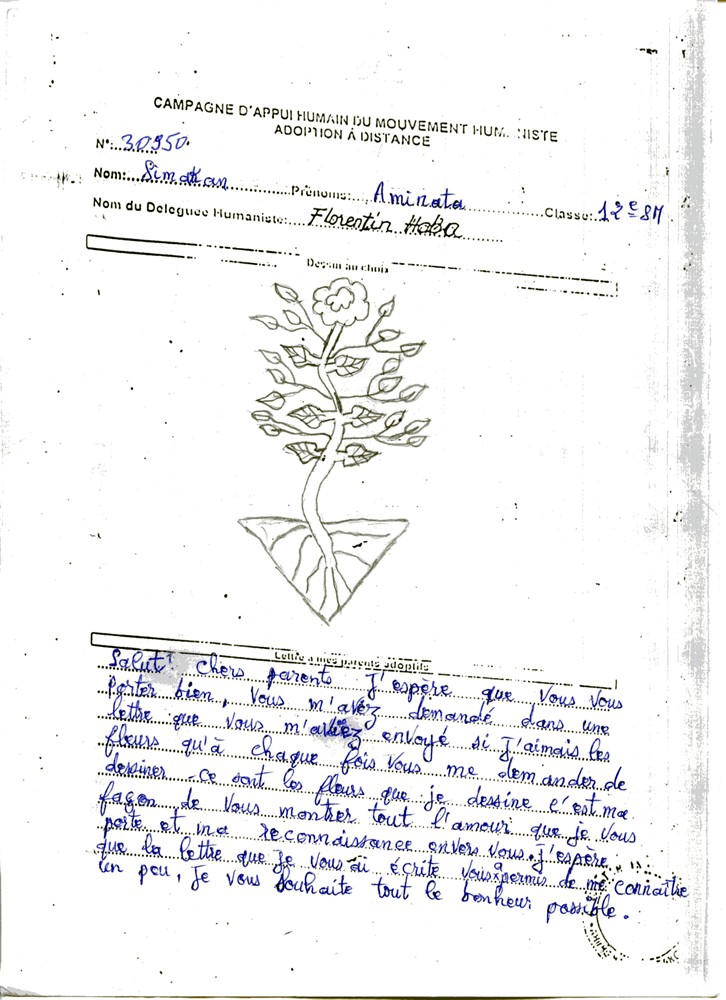 CAMPAGNE D'APPUI HUMAIN DU MOUVEMENT HUM. NISTE
ADOPTION À DISTANCE
N°: 30950.
Nom: Simakan Prénoms: Aminata Classe: 12e SM
Nom du Deleguée Humaniste: Florentin Haba
Dessin au choix
Lettre a mes parents adoptifs
Salut! chers parents J'espère que Vous Vous
porter bien, Vous m'avez demandé dans une
lettre que vous m'aviez envoyé si j'aimais les
fleurs qu'à chaque fois Vous me demander de
dessiner. Ce sont les fleurs que je dessine c'est ma
façon de Vous montrer tout l'amour que je Vous
porte et ma reconnaissance envers Vous. j'espère
que la lettre que je Vous ai écrite Vous a permis de me connaître
un peu, je vous souhaite tout le bonheur possible.